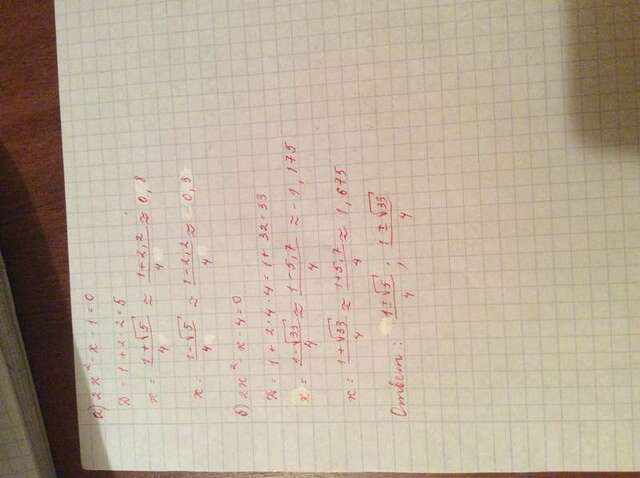 а) 2x² - x - 1 = 0
D = 1 + 2 · 2 = 5
x = (1+√5)/4 ≈ (1+2,2)/4 ≈ 0,8
x = (1-√5)/4 ≈ (1-2,2)/4 ≈ -0,3
б) 2x² - x - 4 = 0
D = 1 + 2 · 4 · 4 = 1 + 32 = 33
x = (1-√33)/4 ≈ (1-5,7)/4 ≈ -1,175
x = (1+√33)/4 ≈ (1+5,7)/4 ≈ 1,675
Ответ: (1±√5)/4 ; (1±√33)/4